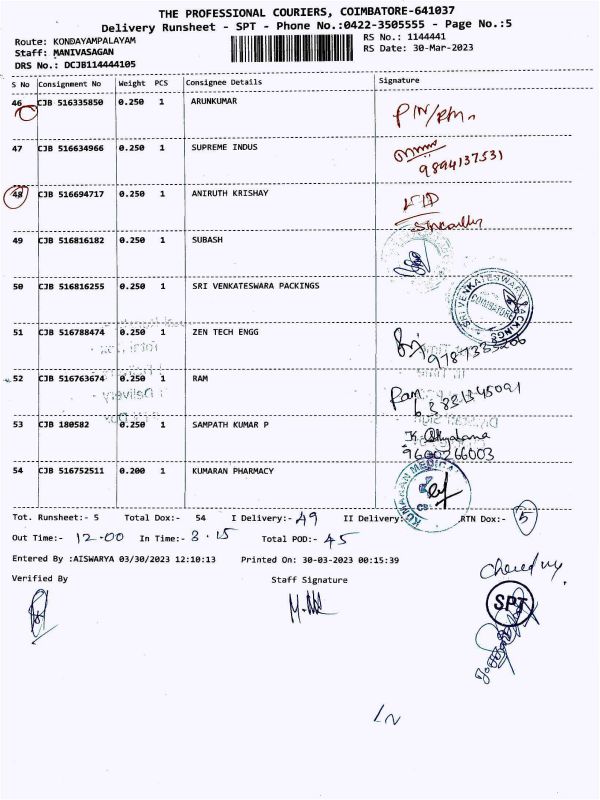 THE PROFESSIONAL COURIERS, COIMBATORE-641037
Delivery Runsheet - SPT - Phone No.:0422-3505555 - Page No.:5
Route: KONDAYAMPALAYAM
RS No.: 1144441
Staff: MANIVASAGAN
RS Date: 30-Mar-2023
DRS No.: DCJB114444105
S No Consignment No Weight PCS Consignee Details Signature
46 CJB 516335850 0.250 1 ARUNKUMAR
47 CJB 516634966 0.250 1 SUPREME INDUS
9894137531
48 CJB 516694717 0.250 1 ANIRUTH KRISHAY
49 CJB 516816182 0.250 1 SUBASH
50 CJB 516816255 0.250 1 SRI VENKATESWARA PACKINGS
SRI VENKATESWARA PACKINGS
COIMBATORE
51 CJB 516788474 0.250 1 ZEN TECH ENGG
52 CJB 516763674 0.250 1 RAM
Ram
53 CJB 180582 0.250 1 SAMPATH KUMAR P
9600266003
54 CJB 516752511 0.200 1 KUMARAN PHARMACY
KUMARAN MEDICA
Tot. Runsheet:- 5 Total Dox:- 54 I Delivery:- 49 II Delivery: RTN Dox:- 5
Out Time:- 12.00 In Time:- 3.15 Total POD:- 45
Entered By :AISWARYA 03/30/2023 12:10:13 Printed On: 30-03-2023 00:15:39
Verified By Staff Signature
SPT